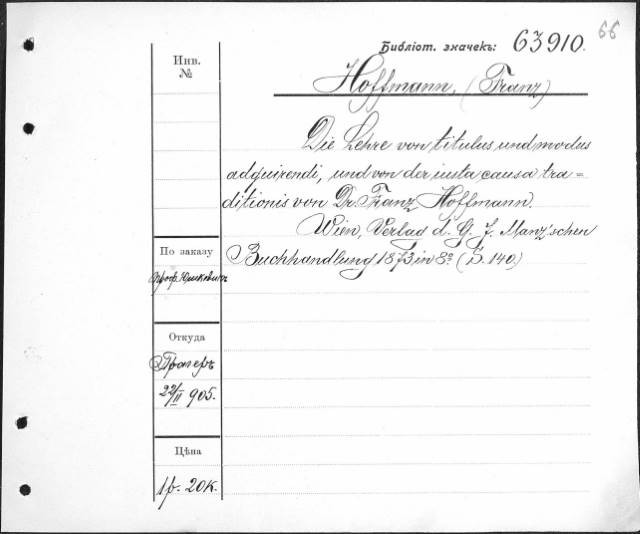 66
Библіот. значекъ: 63910.
Инв.
№
Hoffmann, (Franz)
Die Lehre von titulus und modus
adquirendi, und von der iusta causa tra=
ditionis von Dr. Franz Hoffmann.
Wien, Verlag d. G. J. Manz'schen
Buchhandlung 1873 in 8º (S. 140.)
По заказу
проф. Юшкевичъ
Откуда
Прагеръ
22/II 905.
Цѣна
1р. 20к.